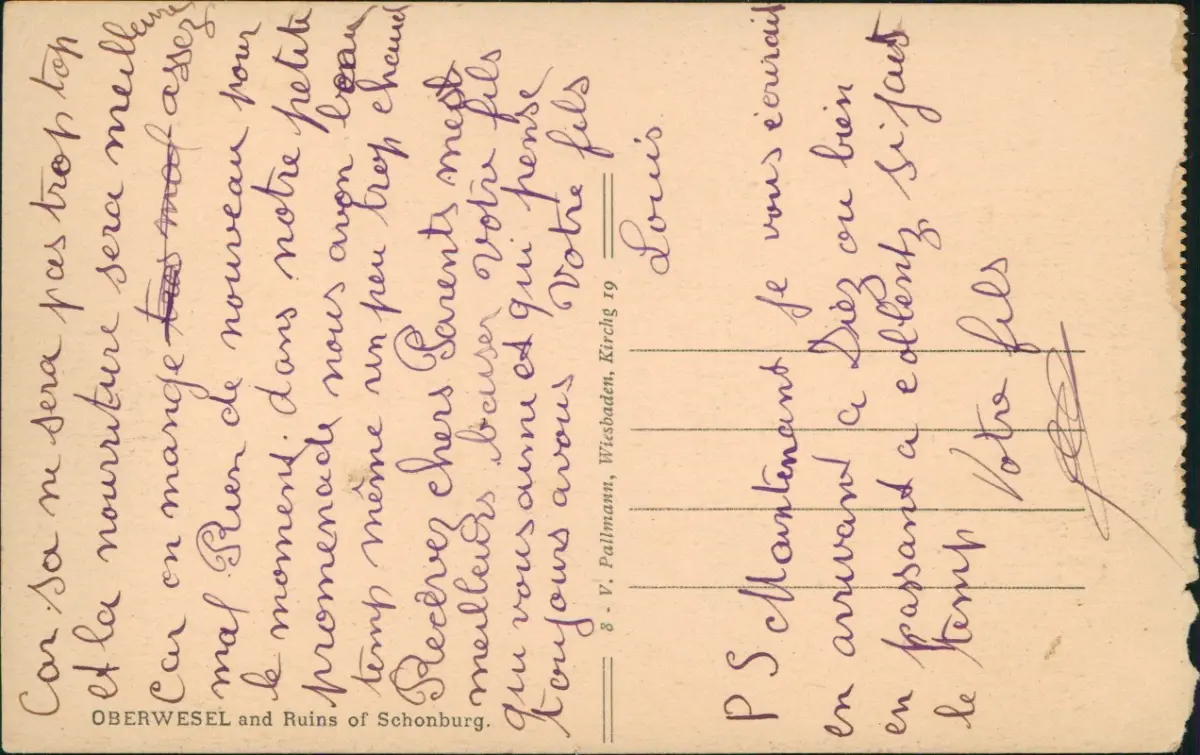 Car sa ne sera pas trop top
et la nourriture sera meilleure
Car on mange tras mal assez
mal Rien de nouveau pour
le moment. dans notre petite
promenade nous avon beau
temp même un peu trop chaud
Recevez chers Parents mes
meilleurs baiser Votre fils
qui vous aime et qui pense
toujours a vous Votre fils
Louis
P S Maintenant je vous écrirait
en arrivant a Diez ou bien
en passant a coblentz si jait
le temp
Votre fils
OBERWESEL and Ruins of Schonburg.
8 - V. Pallmann, Wiesbaden, Kirchg 19